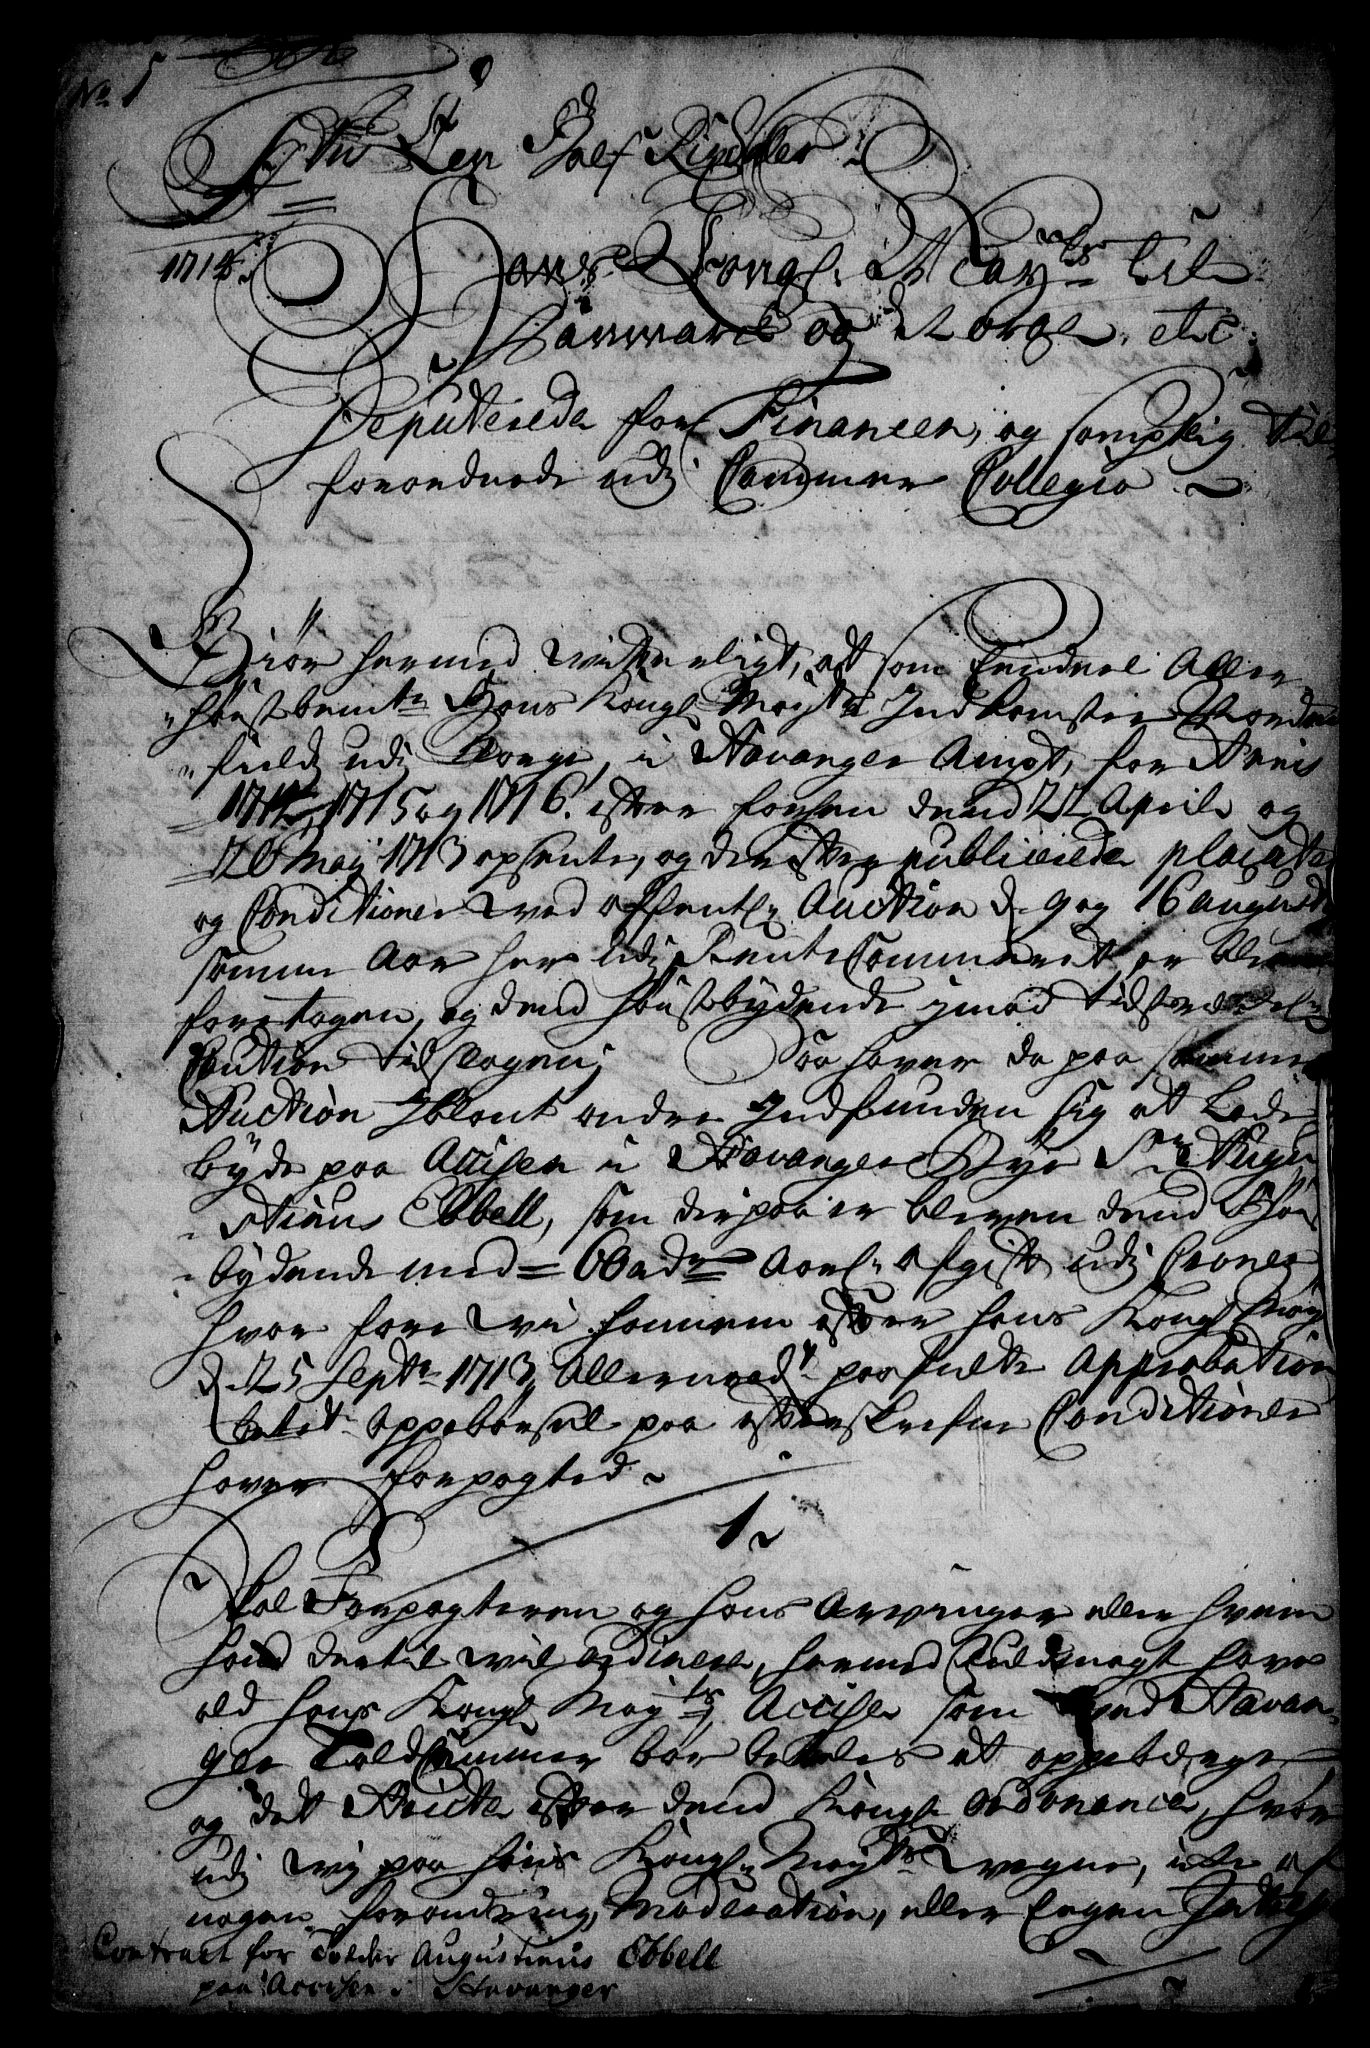 No 5
1714
Hans Kongl. Mayts til
Danmarck og Norge, etc
Deputerede for Financen, og samptlig til
forordnede udj Cammer Collegio
Giør hermed witterligt, at som endeel Aller
høist bemte Hans Kongl Mayts Indkomster Norden
fields udj Norge, i Stavanger Ampt, for Anis
1714, 1715 og 1716. efter forhen dend 22 April og
20 Maij 1713 opsente, og derefter publicerede placater
og Conditioner ved offentl: Auction d. 9 og 16 augusti
samme Aar her udj Rente Cammeret, er bleven
foretagen, og dend høistbydende imod tilstreckel:
Caution tilslagen; Saa haver da paa samme
Auction Iblant andre Indfunden sig at Lade
byde paa Accisen i Stavanger Bye Sr Augu
stinus Ebbell, som derpaa er bleven dend høist
bydende med 60 rdr Aarl: afgift udj Croner
hvor fore wi hannem efter hans Kongl May
d. 25 Septr 1713 Allernaadt paa fulte Approbation
oppebørsel paa efterskrefne Conditioner
haver forpagted
1
Skal Forpagteren og hans Arvinger eller hvem
hand dertil wil ordinere, hermed fuldmagt have
ald hans Kongl Mayts Accise som ved Stavan
ger Told Cammer bør betales at oppebærge
og det Strictè efter dend Kongl ordonance, hvor
udj wij paa hans Kongl: Mayts wegne, icke af
nogen forandring, Moderation, eller Engen
Contract for Tolder Augustinus Ebbell
paa Accisen i Stavanger